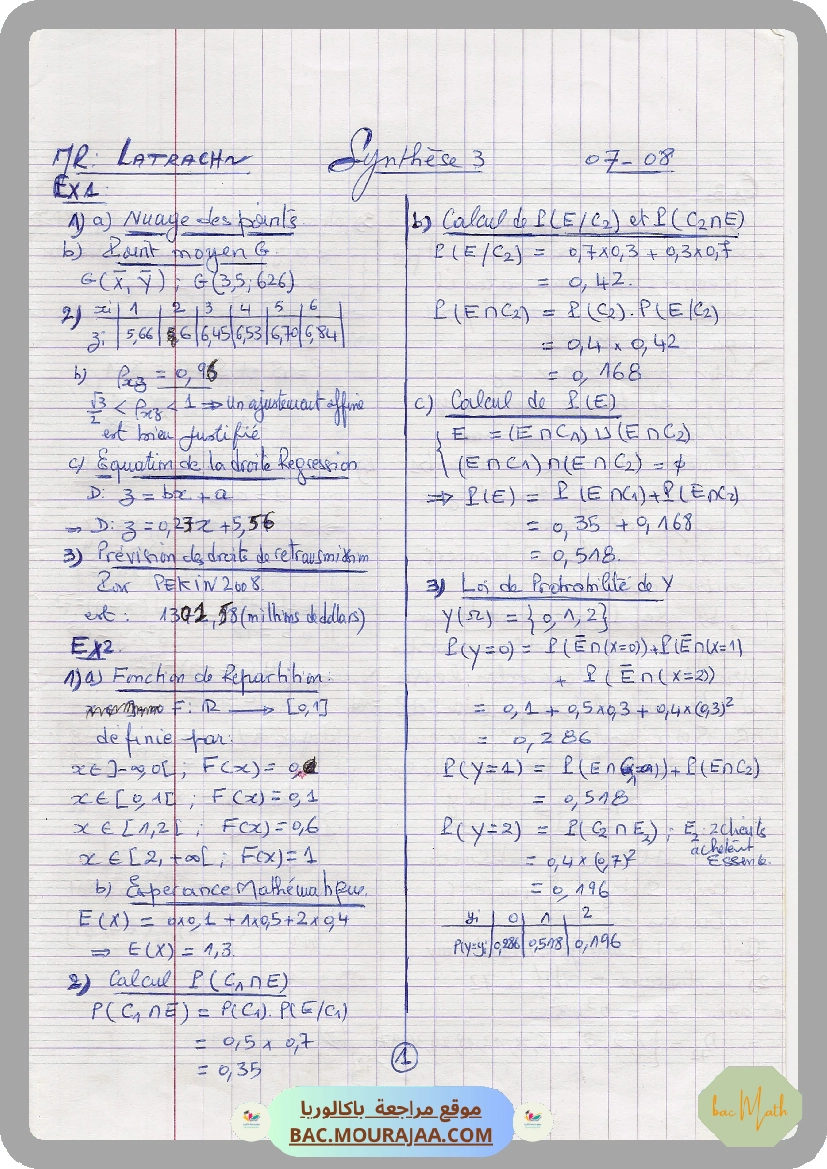 MR: LATRACH
Synthèse 3
07-08
EX1
1) a) Nuage des points
b) Point moyen G.
G(x̄, ȳ) ; G(3,5; 626)
2) xi | 1 | 2 | 3 | 4 | 5 | 6
zi | 5,66 | 6 | 6,45 | 6,53 | 6,70 | 6,84
b) ρxz = 0,96
√3/2 < ρxz < 1 ⇒ un ajustement affine
est bien justifié
c) Equation de la droite Regression
D: z = bx + a
⇒ D: z = 0,23x + 5,56
3) Prévision des droits de retransmission
Pour PEKIN 2008.
est : 1302,58 (millions de dollars)
EX2
1) a) Fonction de Répartition:
F: IR → [0,1]
définie par:
x ∈ ]-∞,0[ ; F(x) = 0
x ∈ [0,1[ ; F(x) = 0,1
x ∈ [1,2[ ; F(x) = 0,6
x ∈ [2,+∞[ ; F(x) = 1
b) Espérance Mathématique.
E(X) = 0x0,1 + 1x0,5 + 2x0,4
⇒ E(X) = 1,3.
2) Calcul P(C1∩E)
P(C1∩E) = P(C1). P(E/C1)
= 0,5 x 0,7
= 0,35
b) Calcul de P(E/C2) et P(C2∩E)
P(E/C2) = 0,7x0,3 + 0,3x0,7
= 0,42.
P(E∩C2) = P(C2). P(E/C2)
= 0,4 x 0,42
= 0,168
c) Calcul de P(E)
{ E = (E∩C1) ∪ (E∩C2)
(E∩C1) ∩ (E∩C2) = ϕ
⇒ P(E) = P(E∩C1) + P(E∩C2)
= 0,35 + 0,168
= 0,518.
3) Loi de Probabilité de Y
Y(Ω) = {0,1,2}
P(Y=0) = P(Ē∩(X=0)) + P(Ē∩(X=1)
+ P(Ē∩(X=2))
= 0,1 + 0,5x0,3 + 0,4x(0,3)²
= 0,286
P(Y=1) = P(E∩C1) + P(E∩C2)
= 0,518
P(Y=2) = P(C2∩E2) ; E2: 2 clients
achètent
Essence.
= 0,4 x (0,7)²
= 0,196
yi | 0 | 1 | 2
P(Y=yi) | 0,286 | 0,518 | 0,196
1
موقع مراجعة باكالوريا
BAC.MOURAJAA.COM
bac Math